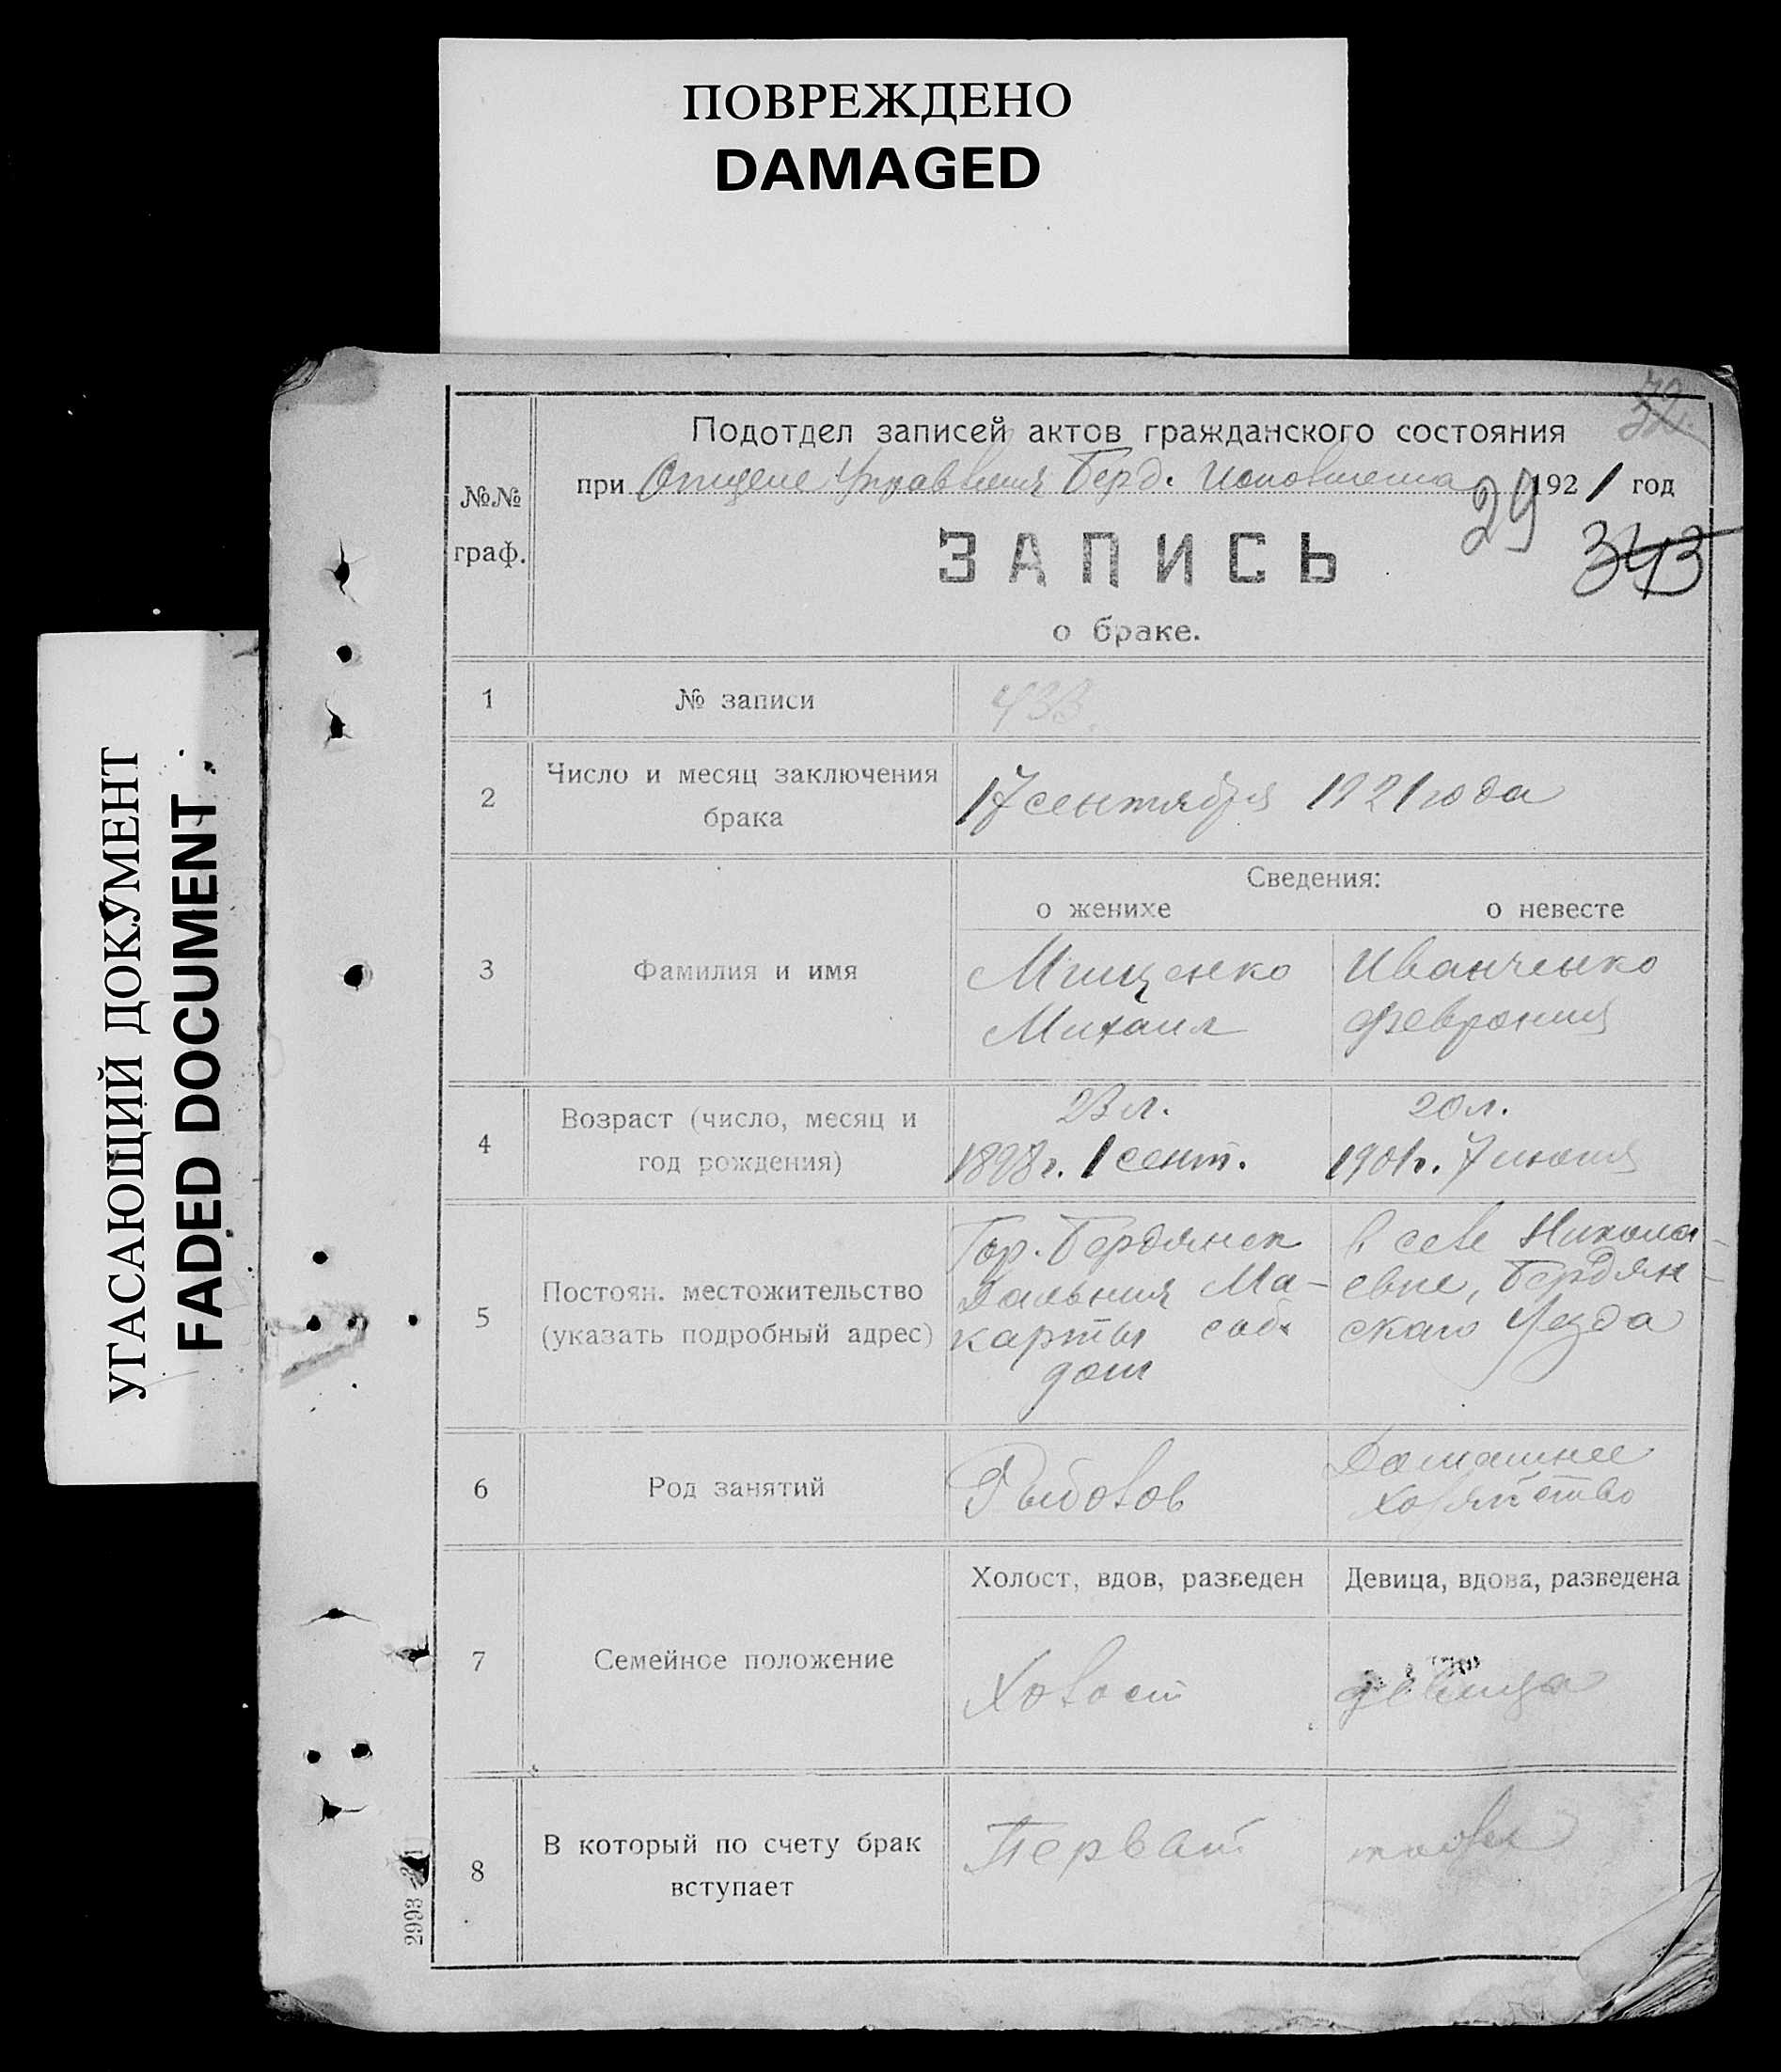 ПОВРЕЖДЕНО
DAMAGED
УГАСАЮЩИЙ ДОКУМЕНТ
FADED DOCUMENT
32
Подотдел записей актов гражданского состояния
при Отделе Управления Берд. Исполкома 1921 год
29
343
№№
граф.
ЗАПИСЬ
о браке.
1 № записи 433.
2 Число и месяц заключения
брака
17 сентября 1921 года
Сведения:
о женихе о невесте
3 Фамилия и имя
Мищенко Иванченко
Михаил Феврония
4 Возраст (число, месяц и
год рождения)
23 л. 20 л.
1898 г. 1 сент. 1901 г. 7 июня
5 Постоян. местожительство
(указать подробный адрес)
Гор. Бердянск в селе Никола-
Дальния Ма- евке, Бердян-
карты соб. скаго Уезда
дом
6 Род занятий
Рыболов Домашнее
хозяйство
7 Семейное положение
Холост, вдов, разведен Девица, вдова, разведена
Холост девица
8 В который по счету брак
вступает
Первый тоже
2993